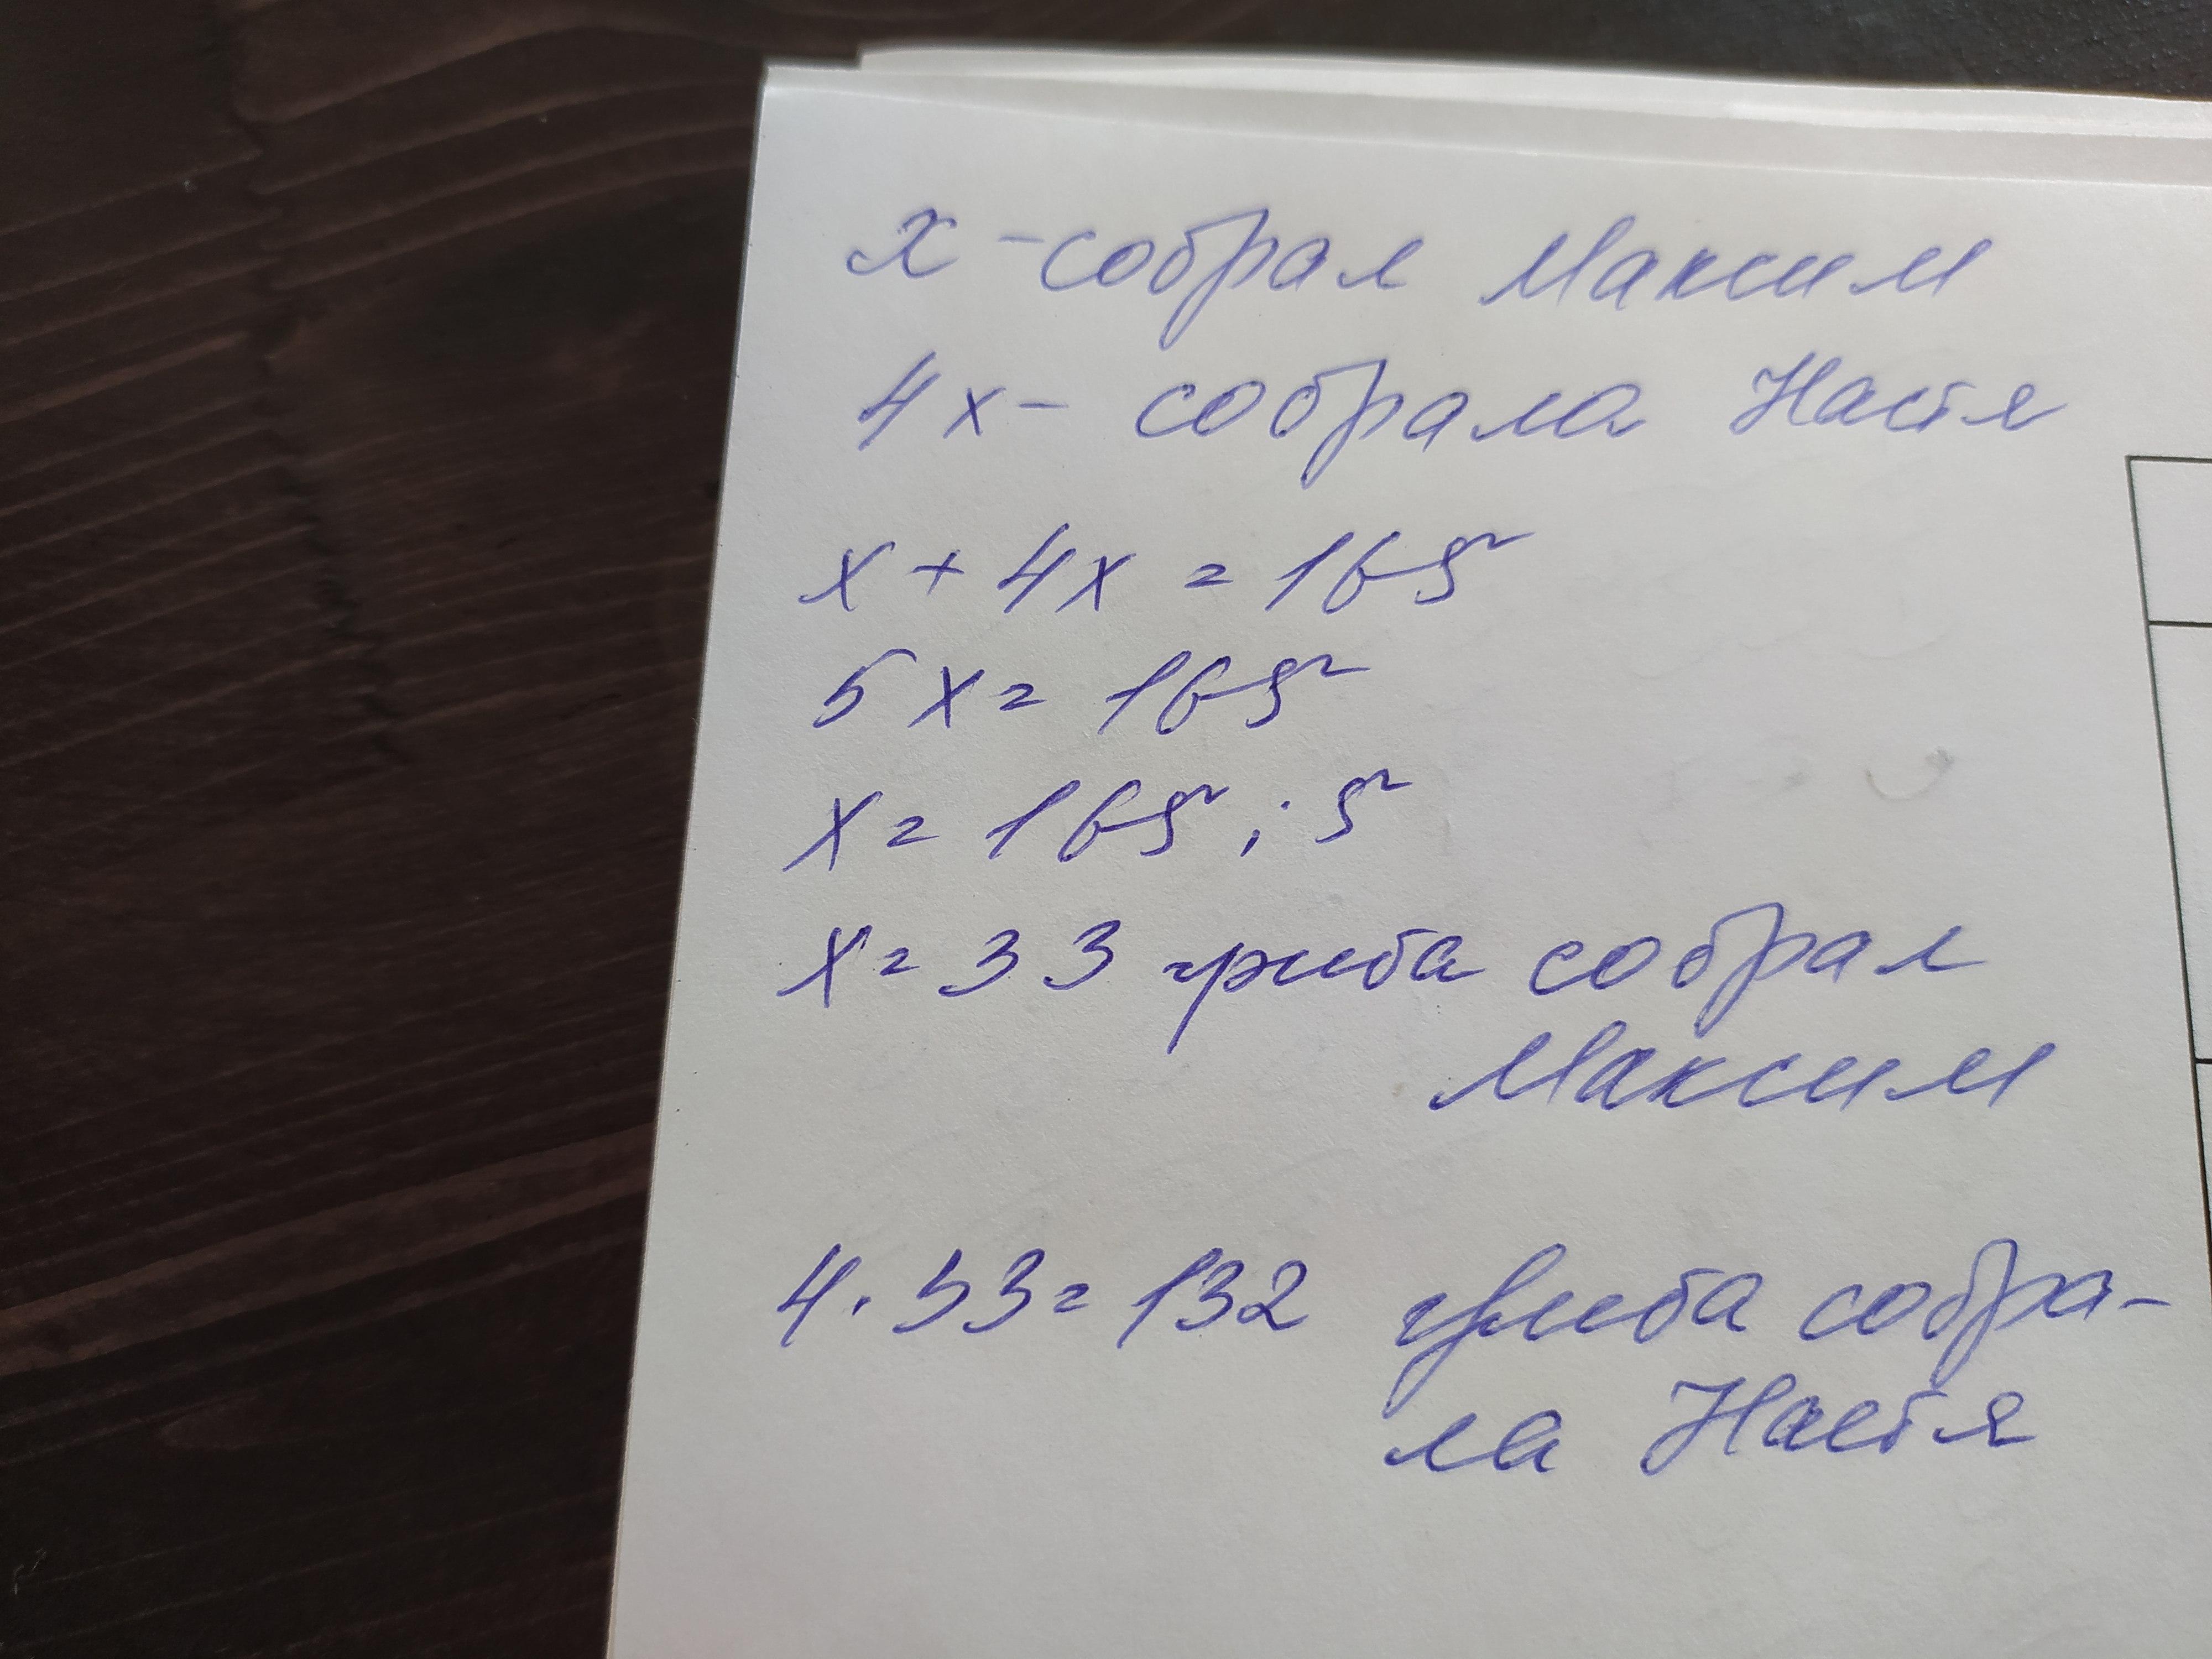 x - собрал Максим
4x - собрала Настя
x + 4x = 165
5x = 165
x = 165 : 5
x = 33 гриба собрал
Максим
4 · 33 = 132 гриба собра-
ла Настя